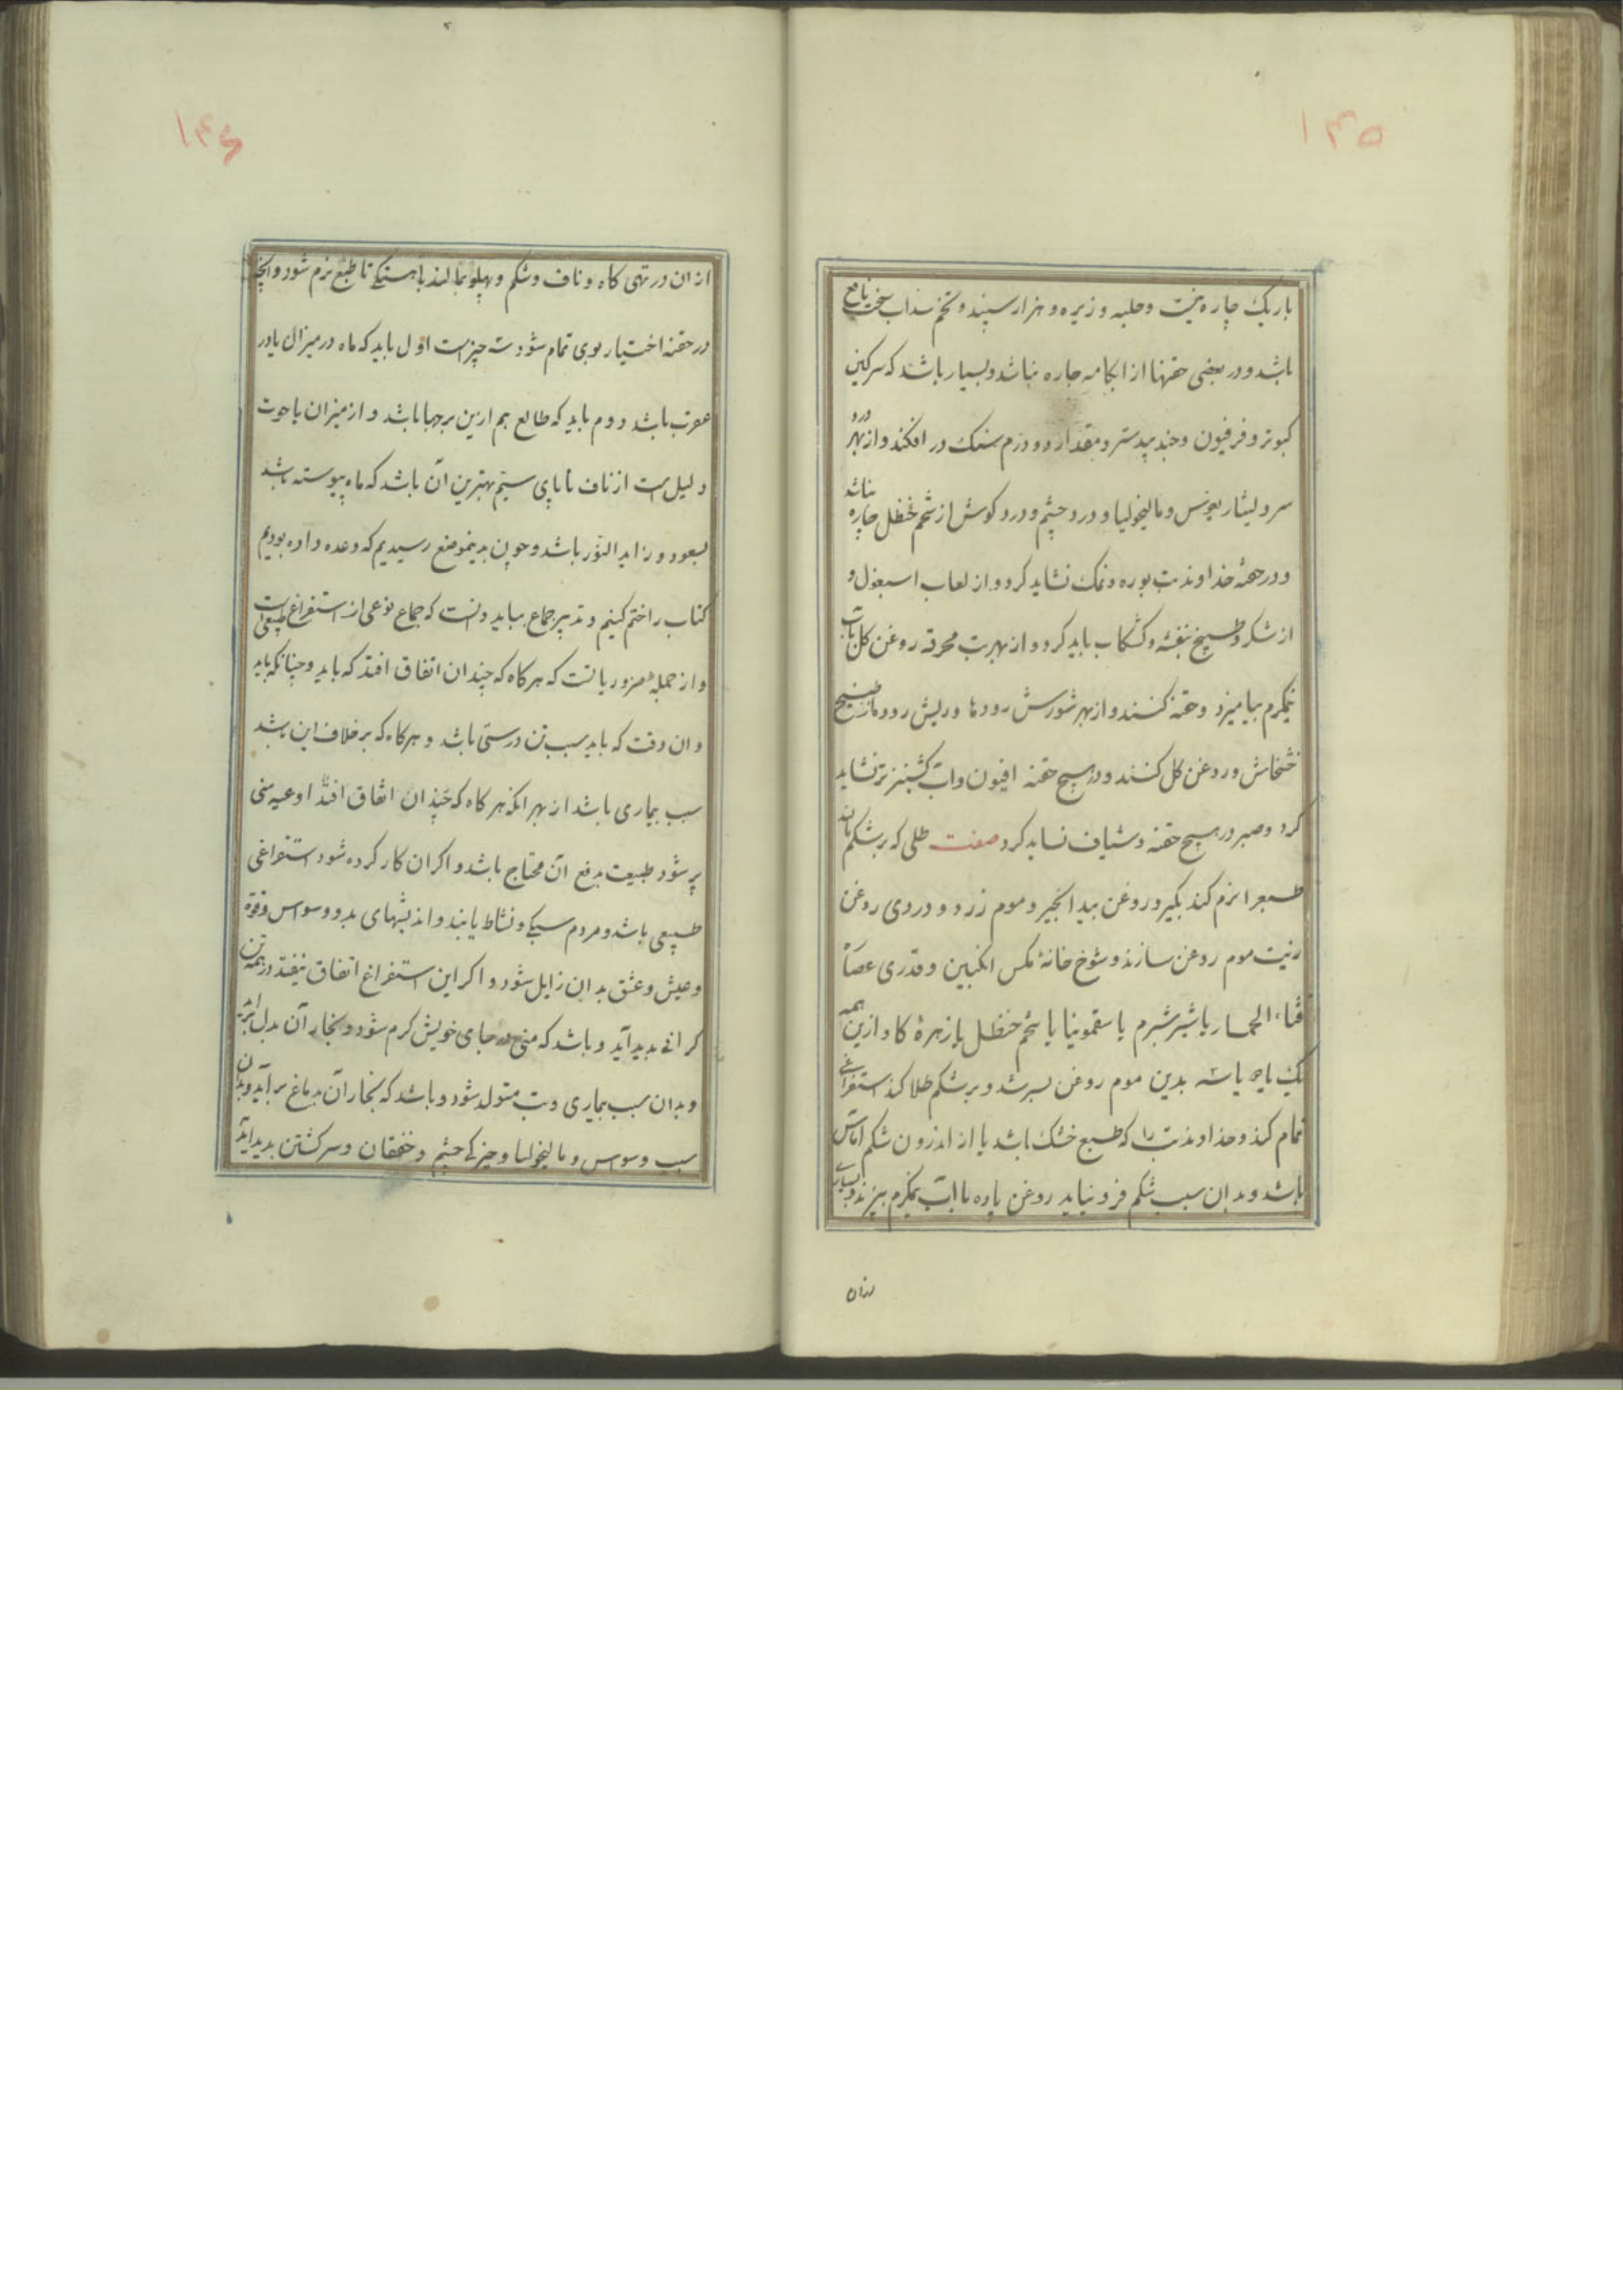 ۱۳۵
باریک چاره نیست و حلبه و زیره و هزار سپند و تخم سداب سخت نافع
باشد و در بعضی حقنها از ابکامه چاره نباشد و بسیار باشد که سرکین
کبوتر و فرفیون و جند بیدستر و مقدار دو درم سنک در افکند و از بهر درد
سر و لیثاریغوس و مالیخولیا و درد چشم و درد کوش از شحم حنظل چاره نباشد
و در حقنهٔ خداوند تب بوره و نمک نشاید کرد و از لعاب اسبغول و
از شکر و طبیخ بنفشه و کشکاب باید کرد و از بهر تب محرقه روغن کل با آب
نیمکرم بیامیزد و حقنه کنند و از بهر شورش رودها و ریش روده از طبیخ
خشخاش و روغن کل کنند و در هیچ حقنه افیون و آب کشنیز تر نشاید
کرد و صبر در هیچ حقنه و شیاف نشاید کرد صفت طلی که بر شکم مالند
طبع را نرم کند بکیرد روغن بید انجیر و موم زرد و دردی روغن
زیت موم روغن سازند و شوخ خانهٔ مکس انکبین و قدری عصارهٔ
قثاء الحمار یا شیر شبرم یا سقمونیا یا شحم حنظل یا زهرهٔ کاو ازین همه
یک یا دو یا سه بدین موم روغن بسرشد و بر شکم طلا کند استفراغی
تمام کند و خداوند تب را که طبع خشک باشد یا از اندرون شکم آماس
باشد و بدان سبب شکم فرو نیاید روغن پاره با آب نیمکرم بیزند و بسیاری
ازان
۱۳۶
از ان در تهی کاه و ناف و شکم و پهلو بمالند باهستکی تا طبع نرم شود و انچه
در حقنه اختیار بوی تمام شود سه چیز است اول باید که ماه در میزان یا در
عقرب باشد دوم باید که طالع هم ازین برجها باشد و از میزان تا حوت
دلیل است از ناف تا پای سیم بهترین آن باشد که ماه پیوسته باشد
بسعود و زاید النور باشد و چون بدینموضع رسیدیم که وعده داده بودیم
کتاب را ختم کنیم و تدبیر جماع بباید دانست که جماع نوعی از استفراغ طبیعی است
و از جمله ضروریاتست که هر کاه که چندان اتفاق افتد که باید و چنانکه باید
و ان وقت که باید سبب تن درستی باشد و هر کاه که بر خلاف این باشد
سبب بیماری باشد از بهر انکه هر کاه که چندان اتفاق افتد اوعیه منی
پر شود طبیعت بدفع آن محتاج باشد و اکر ان کار کرده شود استفراغی
طبیعی باشد و مردم سبکی و نشاط یابند و اندیشهای بد و وسواس و قوة
و عیش و عشق بدان زایل شود و اکر این استفراغ اتفاق نیفتد در همه تن
کرانی بدید آید و باشد که منی در جای خویش کرم شود و بخار آن بدل بر آید
و بدان سبب بیماری و تب متولد شود و باشد که بخار آن بدماغ بر آید و بدان
سبب وسواس و مالیخولیا و خیرکی چشم و خفقان و سر کشتن بدید آید